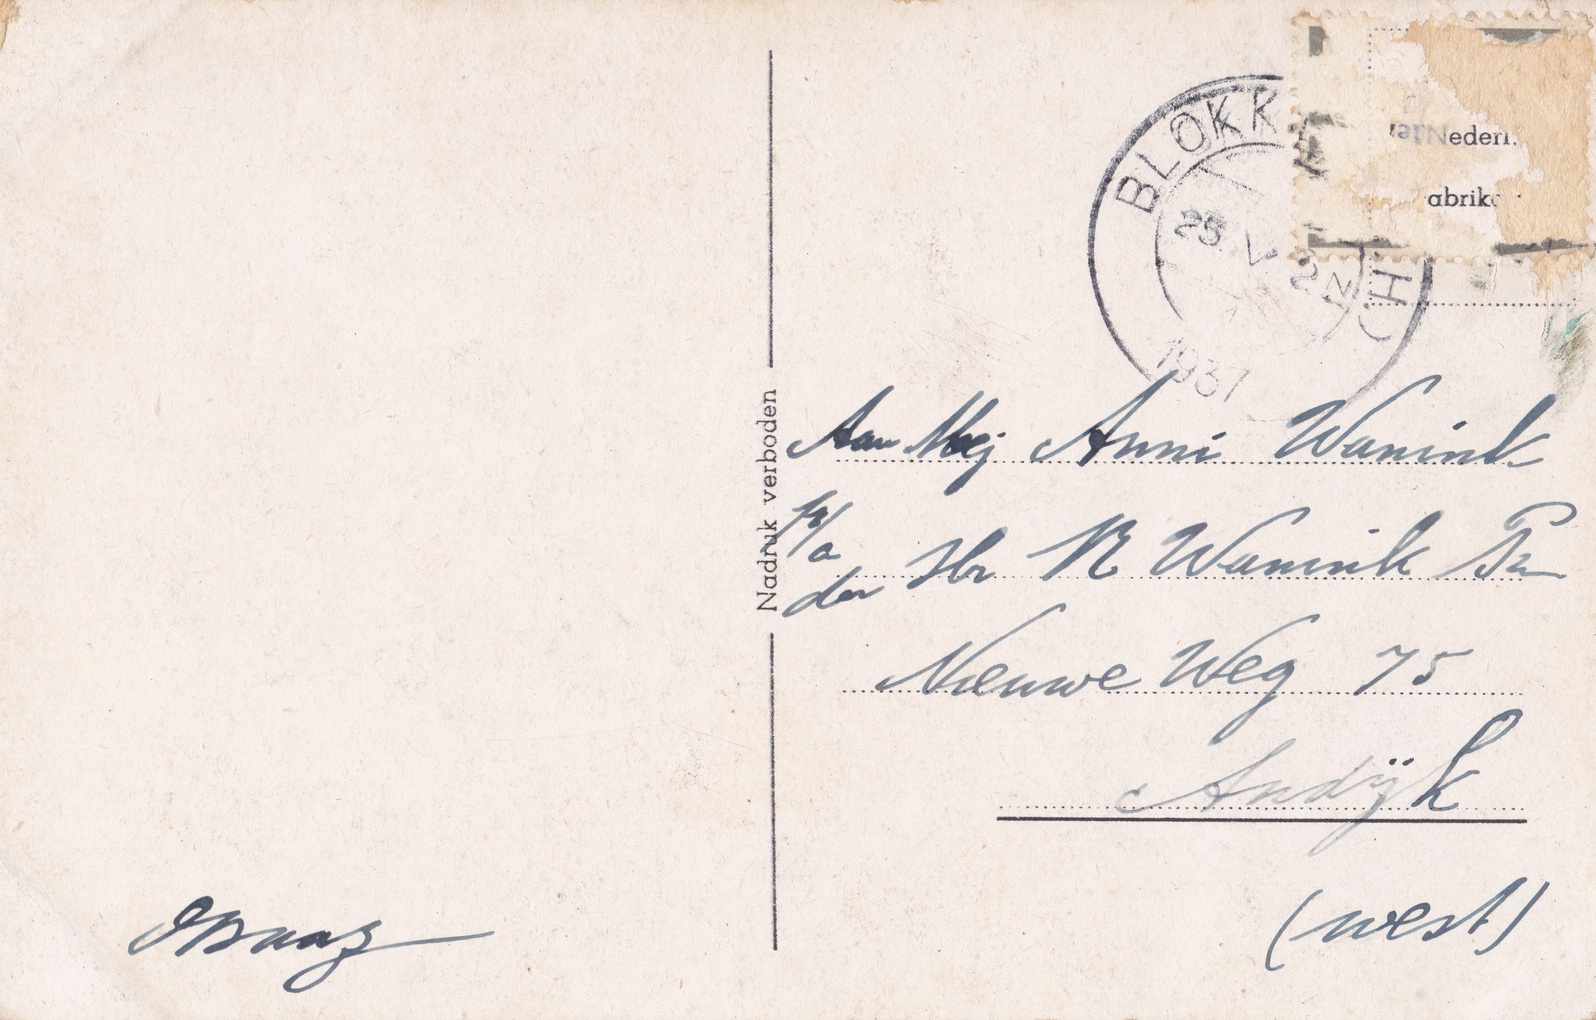 BLOKK
25 V 2 N
H
1937
Nederl.
abrik
Nadruk verboden
Aan Mej Anni Wanink
p/a
den Hr R Wanink Pzn
Nieuwe Weg 75
Andijk
(west)